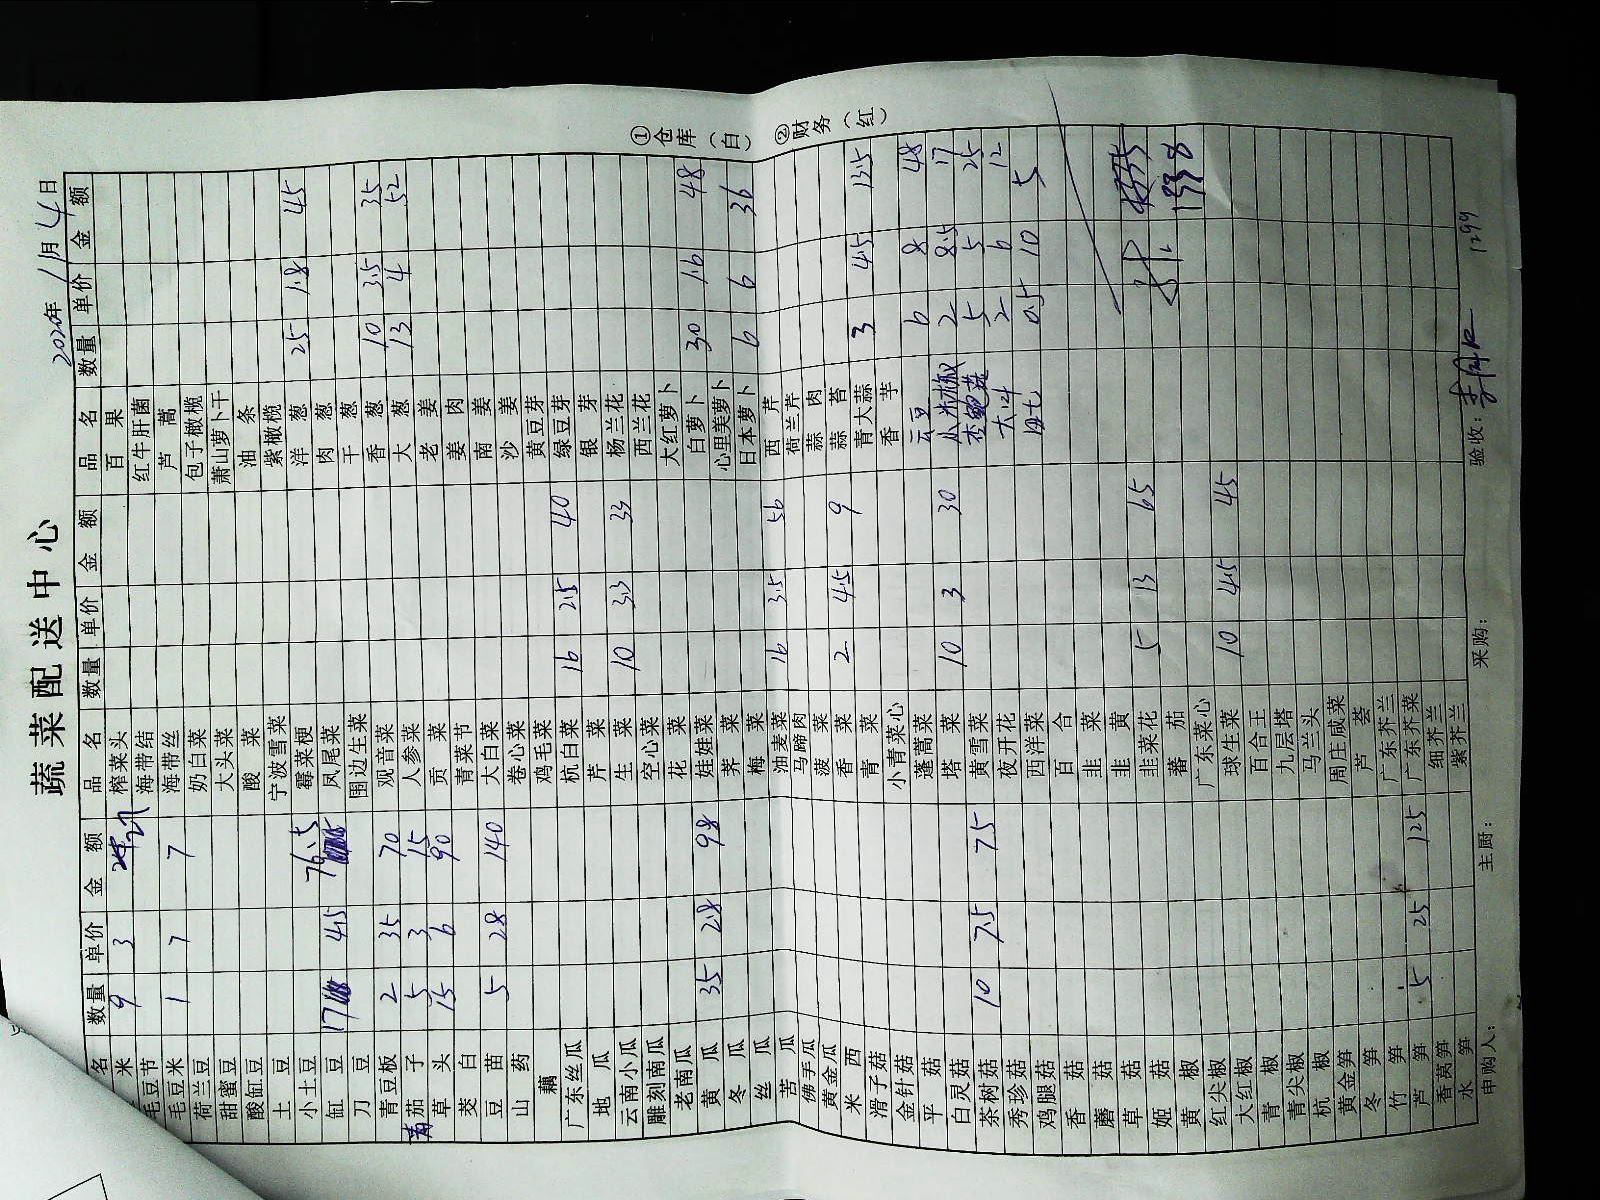 蔬菜配送中心
2020年 1月 4日
名 数量 单价 金额 品名 数量 单价 金额 品名 数量 单价 金额
米 9 3 27 榨菜头 百果
毛豆节 海带结 红牛肝菌
毛豆米 1 7 7 海带丝 芦蒿
荷兰豆 奶白菜 包子橄榄
甜蜜豆 大头菜 萧山萝卜干
酸缸豆 酸菜 油条
土豆 宁波雪菜 紫橄榄
小土豆 霉菜梗 洋葱 25 1.8 45
缸豆 17 4.5 76.5 凤尾菜 肉葱
刀豆 围边生菜 干葱
青豆板 2 35 70 观音菜 香葱 10 3.5 35
茄子 5 3 15 人参菜 大葱 13 4 52
草头 15 6 90 贡菜 老姜
茭白 青菜节 姜肉
豆苗 5 28 140 大白菜 南姜
山药 卷心菜 沙姜
藕 鸡毛菜 黄豆芽
广东丝瓜 杭白菜 16 2.5 40 绿豆芽
地瓜 芹菜 银芽
云南小瓜 生菜 10 3.3 33 杨兰花
雕刻南瓜 空心菜 西兰花
老南瓜 花菜 大红萝卜
黄瓜 35 2.8 98 娃娃菜 白萝卜 30 1.6 48
冬瓜 荠菜 心里美萝卜
丝瓜 梅菜 日本萝卜 6 6 36
苦瓜 油麦菜 16 3.5 56 西芹
佛手瓜 马蹄肉 荷兰芹
黄金瓜 菠菜 蒜肉
米西 香菜 2 4.5 9 蒜苔
滑子菇 青菜 青大蒜 3 4.5 13.5
金针菇 小青菜心 香芋
平菇 蓬蒿菜 云豆 6 8 48
白灵菇 塔菜 10 3 30 小米椒 2 8.5 17
茶树菇 10 7.5 75 黄雪菜 杏鲍菇 5 5 25
秀珍菇 夜开花 2 6 12
鸡腿菇 西洋菜 0.5 10 5
香菇 百合
蘑菇 韭菜
草菇 韭黄
姬菇 韭菜花 5 13 65
黄椒 蕃茄
红尖椒 广东菜心
大红椒 球生菜 10 4.5 45
青椒 百合王
青尖椒 九层塔
杭椒 马兰头
黄金笋 周庄咸菜
冬笋 芦荟
竹笋 广东芥兰
芦笋 5 25 125 广东芥菜
香莴笋 细芥兰
水笋 紫芥兰
申购人： 主厨： 采购： 验收： 1299
①仓库（白） ②财务（红）